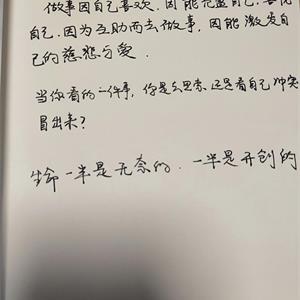 做事因自己喜欢,因能充盈自己,
自己.因为互助而去做事,因能激发自
己的慈悲与爱.
当你看的一件事,你是去思索还是看自己冲突
冒出来?
生命一半是无奈的.一半是开创的